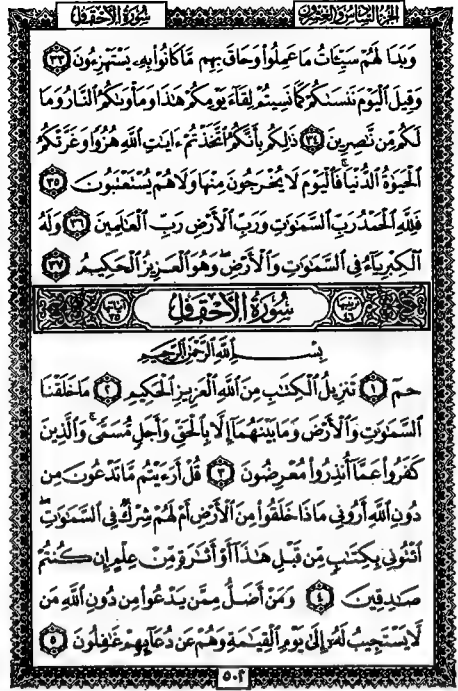 سُورَةُ الْأَحْقَافِ
الجُزءُ السَّادِسُ وَالعِشْرُونَ
وَبَدَا لَهُمْ سَيِّئَاتُ مَا عَمِلُوا وَحَاقَ بِهِم مَّا كَانُوا بِهِ يَسْتَهْزِءُونَ ٣٣
وَقِيلَ الْيَوْمَ نَنسَىٰكُمْ كَمَا نَسِيتُمْ لِقَآءَ يَوْمِكُمْ هَٰذَا وَمَأْوَىٰكُمُ النَّارُ وَمَا
لَكُم مِّن نَّٰصِرِينَ ٣٤ ذَٰلِكُم بِأَنَّكُمُ اتَّخَذْتُمْ ءَايَٰتِ اللَّهِ هُزُوًا وَغَرَّتْكُمُ
الْحَيَوٰةُ الدُّنْيَا ۚ فَالْيَوْمَ لَا يُخْرَجُونَ مِنْهَا وَلَا هُمْ يُسْتَعْتَبُونَ ٣٥
فَلِلَّهِ الْحَمْدُ رَبِّ السَّمَٰوَٰتِ وَرَبِّ الْأَرْضِ رَبِّ الْعَٰلَمِينَ ٣٦ وَلَهُ
الْكِبْرِيَآءُ فِي السَّمَٰوَٰتِ وَالْأَرْضِ ۖ وَهُوَ الْعَزِيزُ الْحَكِيمُ ٣٧
سُورَةُ الْأَحْقَافِ
بِسْمِ اللَّهِ الرَّحْمَٰنِ الرَّحِيمِ
حمٓ ١ تَنزِيلُ الْكِتَٰبِ مِنَ اللَّهِ الْعَزِيزِ الْحَكِيمِ ٢ مَا خَلَقْنَا
السَّمَٰوَٰتِ وَالْأَرْضَ وَمَا بَيْنَهُمَآ إِلَّا بِالْحَقِّ وَأَجَلٍ مُّسَمًّى ۚ وَالَّذِينَ
كَفَرُوا عَمَّآ أُنذِرُوا مُعْرِضُونَ ٣ قُلْ أَرَءَيْتُم مَّا تَدْعُونَ مِن
دُونِ اللَّهِ أَرُونِي مَاذَا خَلَقُوا مِنَ الْأَرْضِ أَمْ لَهُمْ شِرْكٌ فِي السَّمَٰوَٰتِ ۖ
ائْتُونِي بِكِتَٰبٍ مِّن قَبْلِ هَٰذَآ أَوْ أَثَٰرَةٍ مِّنْ عِلْمٍ إِن كُنتُمْ
صَٰدِقِينَ ٤ وَمَنْ أَضَلُّ مِمَّن يَدْعُوا مِن دُونِ اللَّهِ مَن
لَّا يَسْتَجِيبُ لَهُ إِلَىٰ يَوْمِ الْقِيَٰمَةِ وَهُمْ عَن دُعَآئِهِمْ غَٰفِلُونَ ٥
٥٠٢